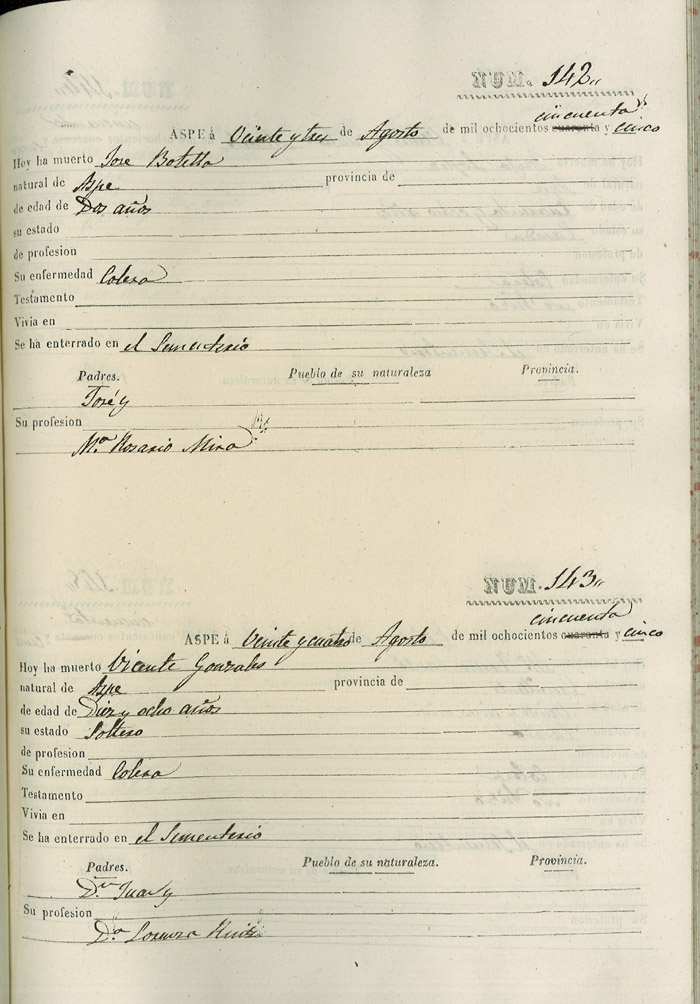 NUM. 142
cincuenta
ASPE á Veinte y tres de Agosto de mil ochocientos cuarenta y cinco
Hoy ha muerto Jose Botella
natural de Aspe provincia de
de edad de Dos años
su estado
de profesion
Su enfermedad Colera
Testamento
Vivia en
Se ha enterrado en el Sementerio
Padres. Pueblo de su naturaleza Provincia.
José y
Su profesion
Mª Rosario Mira
NUM. 143
cincuenta
ASPE á Veinte y cuatro de Agosto de mil ochocientos cuarenta y cinco
Hoy ha muerto Vicente Gonzales
natural de Aspe provincia de
de edad de Diez y ocho años
su estado Soltero
de profesion
Su enfermedad Colera
Testamento
Vivia en
Se ha enterrado en el Sementerio
Padres. Pueblo de su naturaleza. Provincia.
Dn Juan y
Su profesion
Dª Lorenza Ruiz